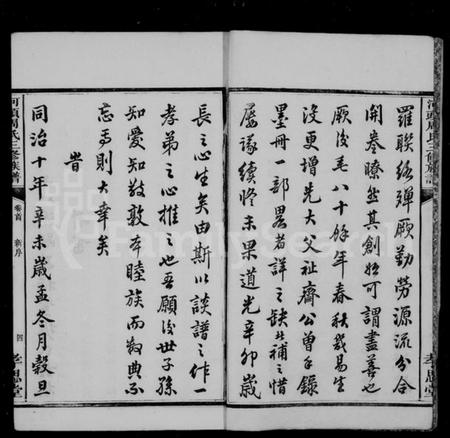 河頭周氏三修族譜
羅聯絡殫厥勤勞源流分合
開卷瞭然其創始可謂盡善也
厥後毛八十餘年春秋幾易生
沒更增先大父祉齋公曾手錄
墨冊一部畧者詳之缺者補之惜
屢議續修未果道光辛卯歲
長之心生矣由斯以談譜之作一
孝弟之心推之也吾願後世子孫
知愛知敬敦本睦族而數典不
忘焉則大幸矣
旹
同治十年辛未歲孟冬月穀旦
河頭周氏三修族譜
卷首
新序
四
孝思堂
FamilySearch